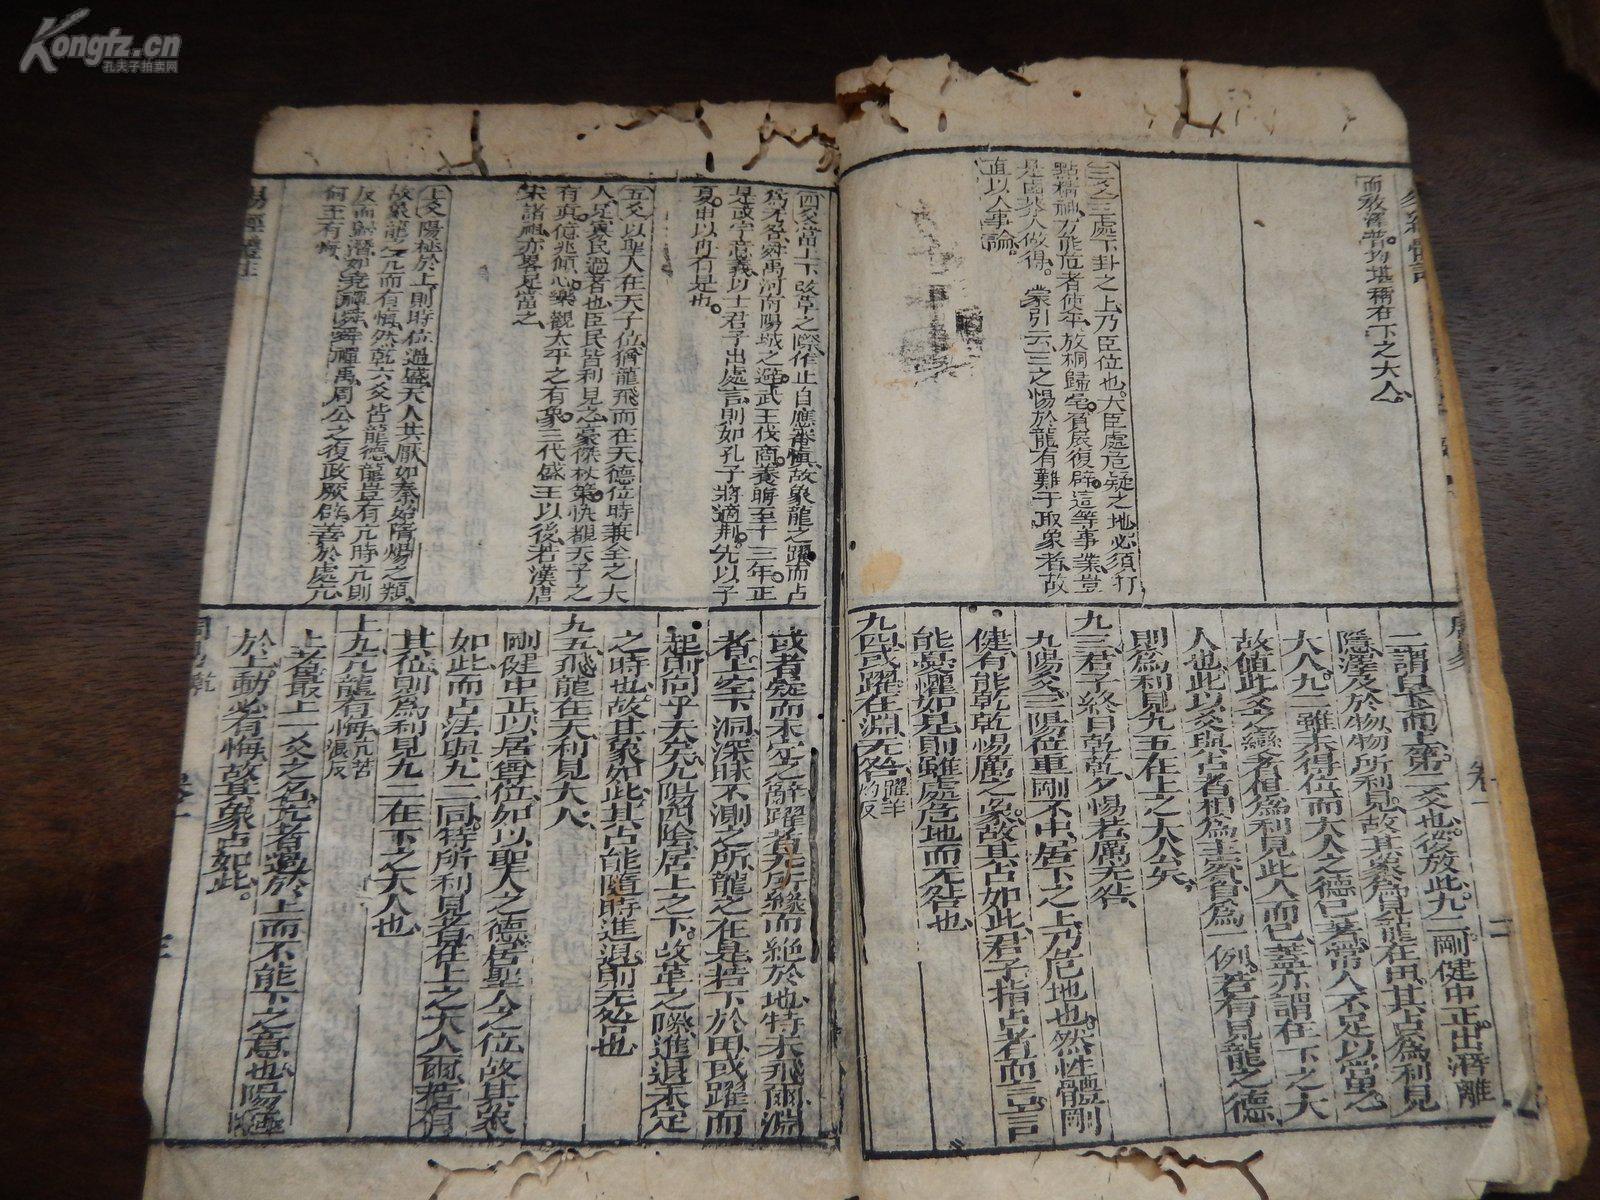 Kongfz.cn
孔夫子拍卖网
而敎澤普均堪稱在下之大人
三爻之三處下卦之上乃臣位也大臣處危疑之地必須打
點精神方能危者使平放桐歸亳負扆復辟這等事業豈
是鹵莽人做得蒙引云三之惕於龍有難于取象者故
直以人事論
二謂自下而上第二爻也後放此九二剛健中正出潛離
隱澤及於物物所利見故其象爲見龍在田其占爲利見
大人九二雖未得位而大人之德已著常人不足以當之
故値此爻之變者但爲利見此人而已蓋亦謂在下之大
人也此以爻與占者相爲主賓自爲一例若有見龍之德
則爲利見九五在上之大人矣
九三君子終日乾乾夕惕若厲无咎
九陽爻三陽位重剛不中居下之上乃危地也然性體剛
健有能乾乾惕厲之象故其占如此君子指占者而言言
能憂懼如是則雖處危地而无咎也
九四或躍在淵无咎躍羊灼反
四爻當上下改革之際作止自應審慎故象龍之躍而占
爲无咎舜禹河南陽城之避武王伐商養晦至十三年正
是或字意義以士君子出處言則如孔子將適荆先以子
夏申以冉有是也
五爻以聖人在天子位猶龍飛而在天德位時兼全之大
人是寡民過者也臣民皆利見之豪傑杖策快覩天子之
有眞億兆傾心樂觀太平之有象三代盛王以後若漢唐
宋諸祖亦畧足當之
上爻陽極於上則時位過盛天人共厭如秦始隋煬之類
故象龍之亢而有悔然乾六爻皆龍德龍豈有亢時亢則
反而歸潛如堯禪舜舜禪禹周公之復政厥辟善於處亢
何王有悔
或者疑而未定之辭躍者无所緣而絶於地特未飛爾淵
者上空下洞深昧不測之所龍之在是若下於田或躍而
起則向乎天矣九陽四陰居上之下改革之際進退未定
之時也故其象如此其占能隨時進退則无咎也
九五飛龍在天利見大人
剛健中正以居尊位如以聖人之德居聖人之位故其象
如此而占法與九二同特所利見者在上之大人爾若有
其位則爲利見九二在下之大人也
上九亢龍有悔亢苦浪反
上者最上一爻之名亢者過於上而不能下之意也陽極
於上動必有悔故其象占如此